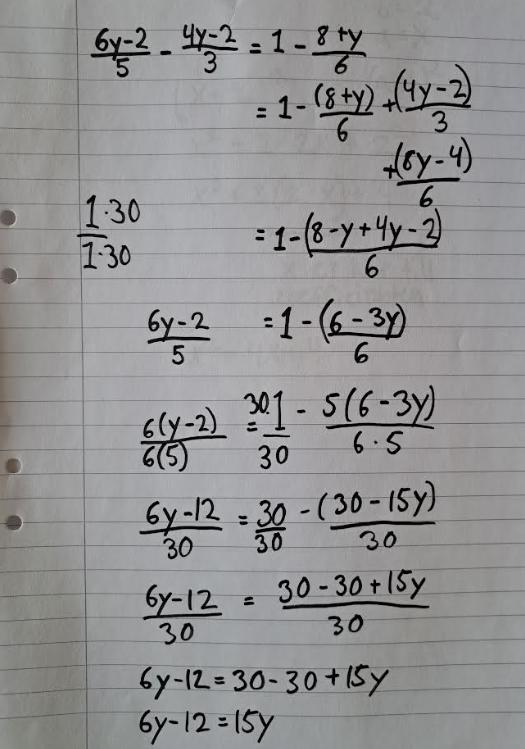 (6y-2)/5 - (4y-2)/3 = 1 - (8+y)/6
= 1 - (8+y)/6 + (4y-2)/3
+ (8y-4)/6
1·30/1·30
= 1 - (8-y+4y-2)/6
6y-2/5 = 1 - (6-3y)/6
6(y-2)/6(5) = 30·1/30 - 5(6-3y)/6·5
6y-12/30 = 30/30 - (30-15y)/30
6y-12/30 = 30-30+15y/30
6y-12 = 30-30+15y
6y-12 = 15y